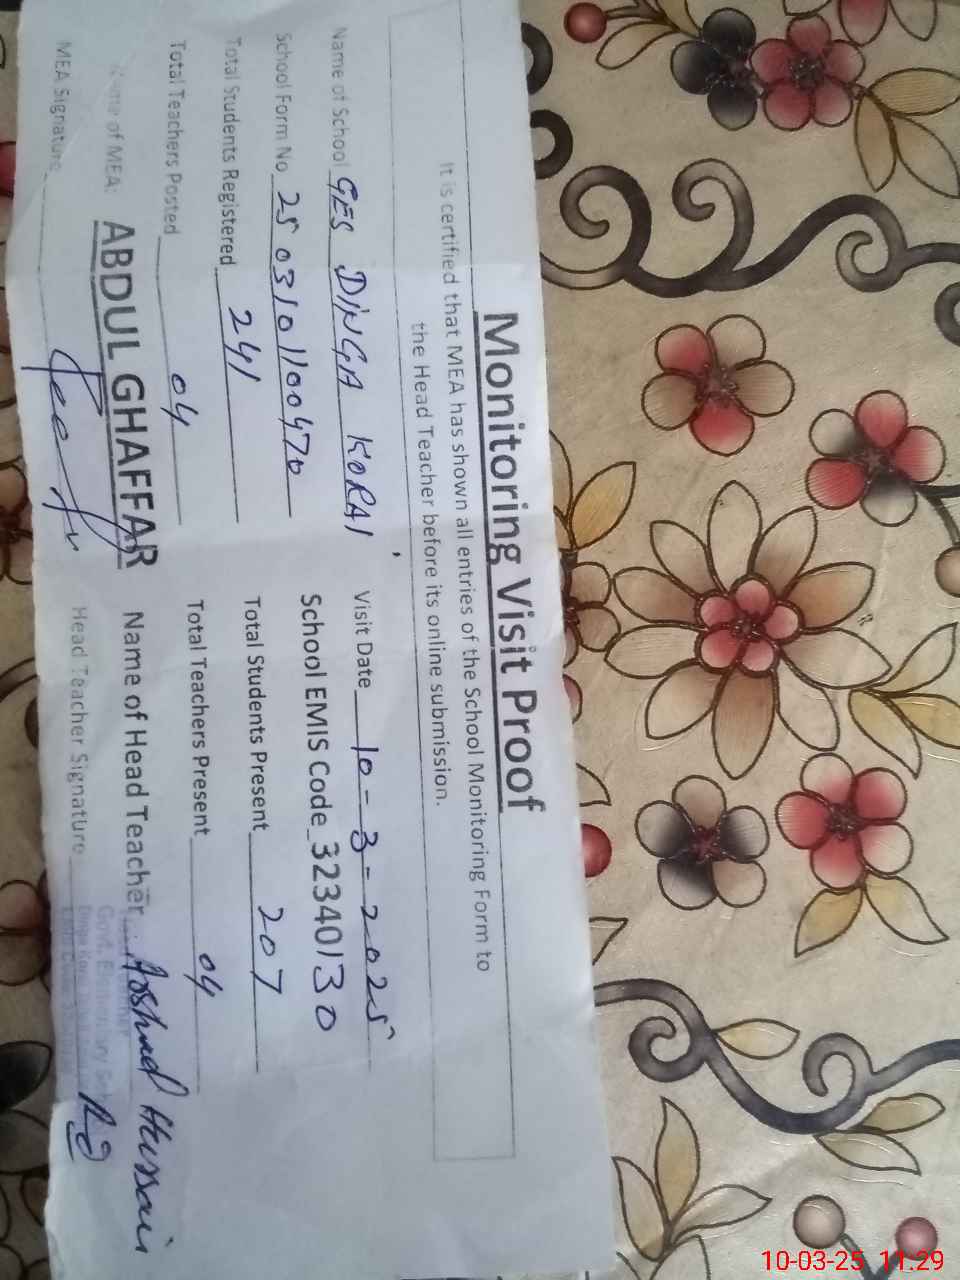 Monitoring Visit Proof
It is certified that MEA has shown all entries of the School Monitoring Form to
the Head Teacher before its online submission.
Name of School GES DINGA KORAI Visit Date 10-3-2025
School Form No 2503101100470 School EMIS Code 32340130
Total Students Registered 241 Total Students Present 207
Total Teachers Posted 04 Total Teachers Present 04
Name of MEA: ABDUL GHAFFAR Name of Head Teacher Arshad Hussain
MEA Signature Head Teacher Signature
Govt. Elementary
10-03-25 11:29